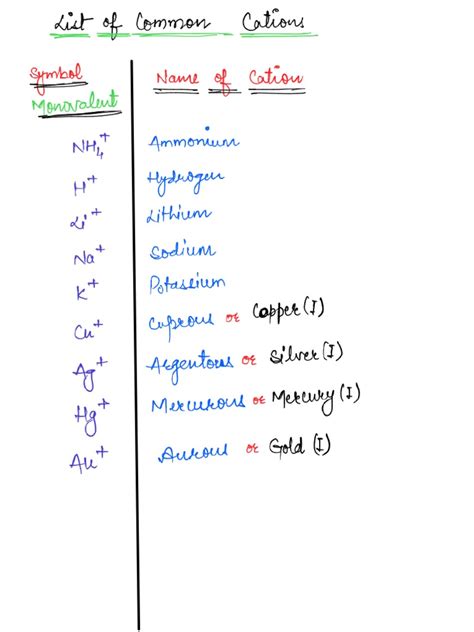 List of Common Cations
Symbol Name of Cation
Monovalent
NH₄⁺ Ammonium
H⁺ Hydrogen
Li⁺ Lithium
Na⁺ Sodium
K⁺ Potassium
Cu⁺ Cuprous or Copper (I)
Ag⁺ Argentous or Silver (I)
Hg⁺ Mercurous or Mercury (I)
Au⁺ Aurous or Gold (I)